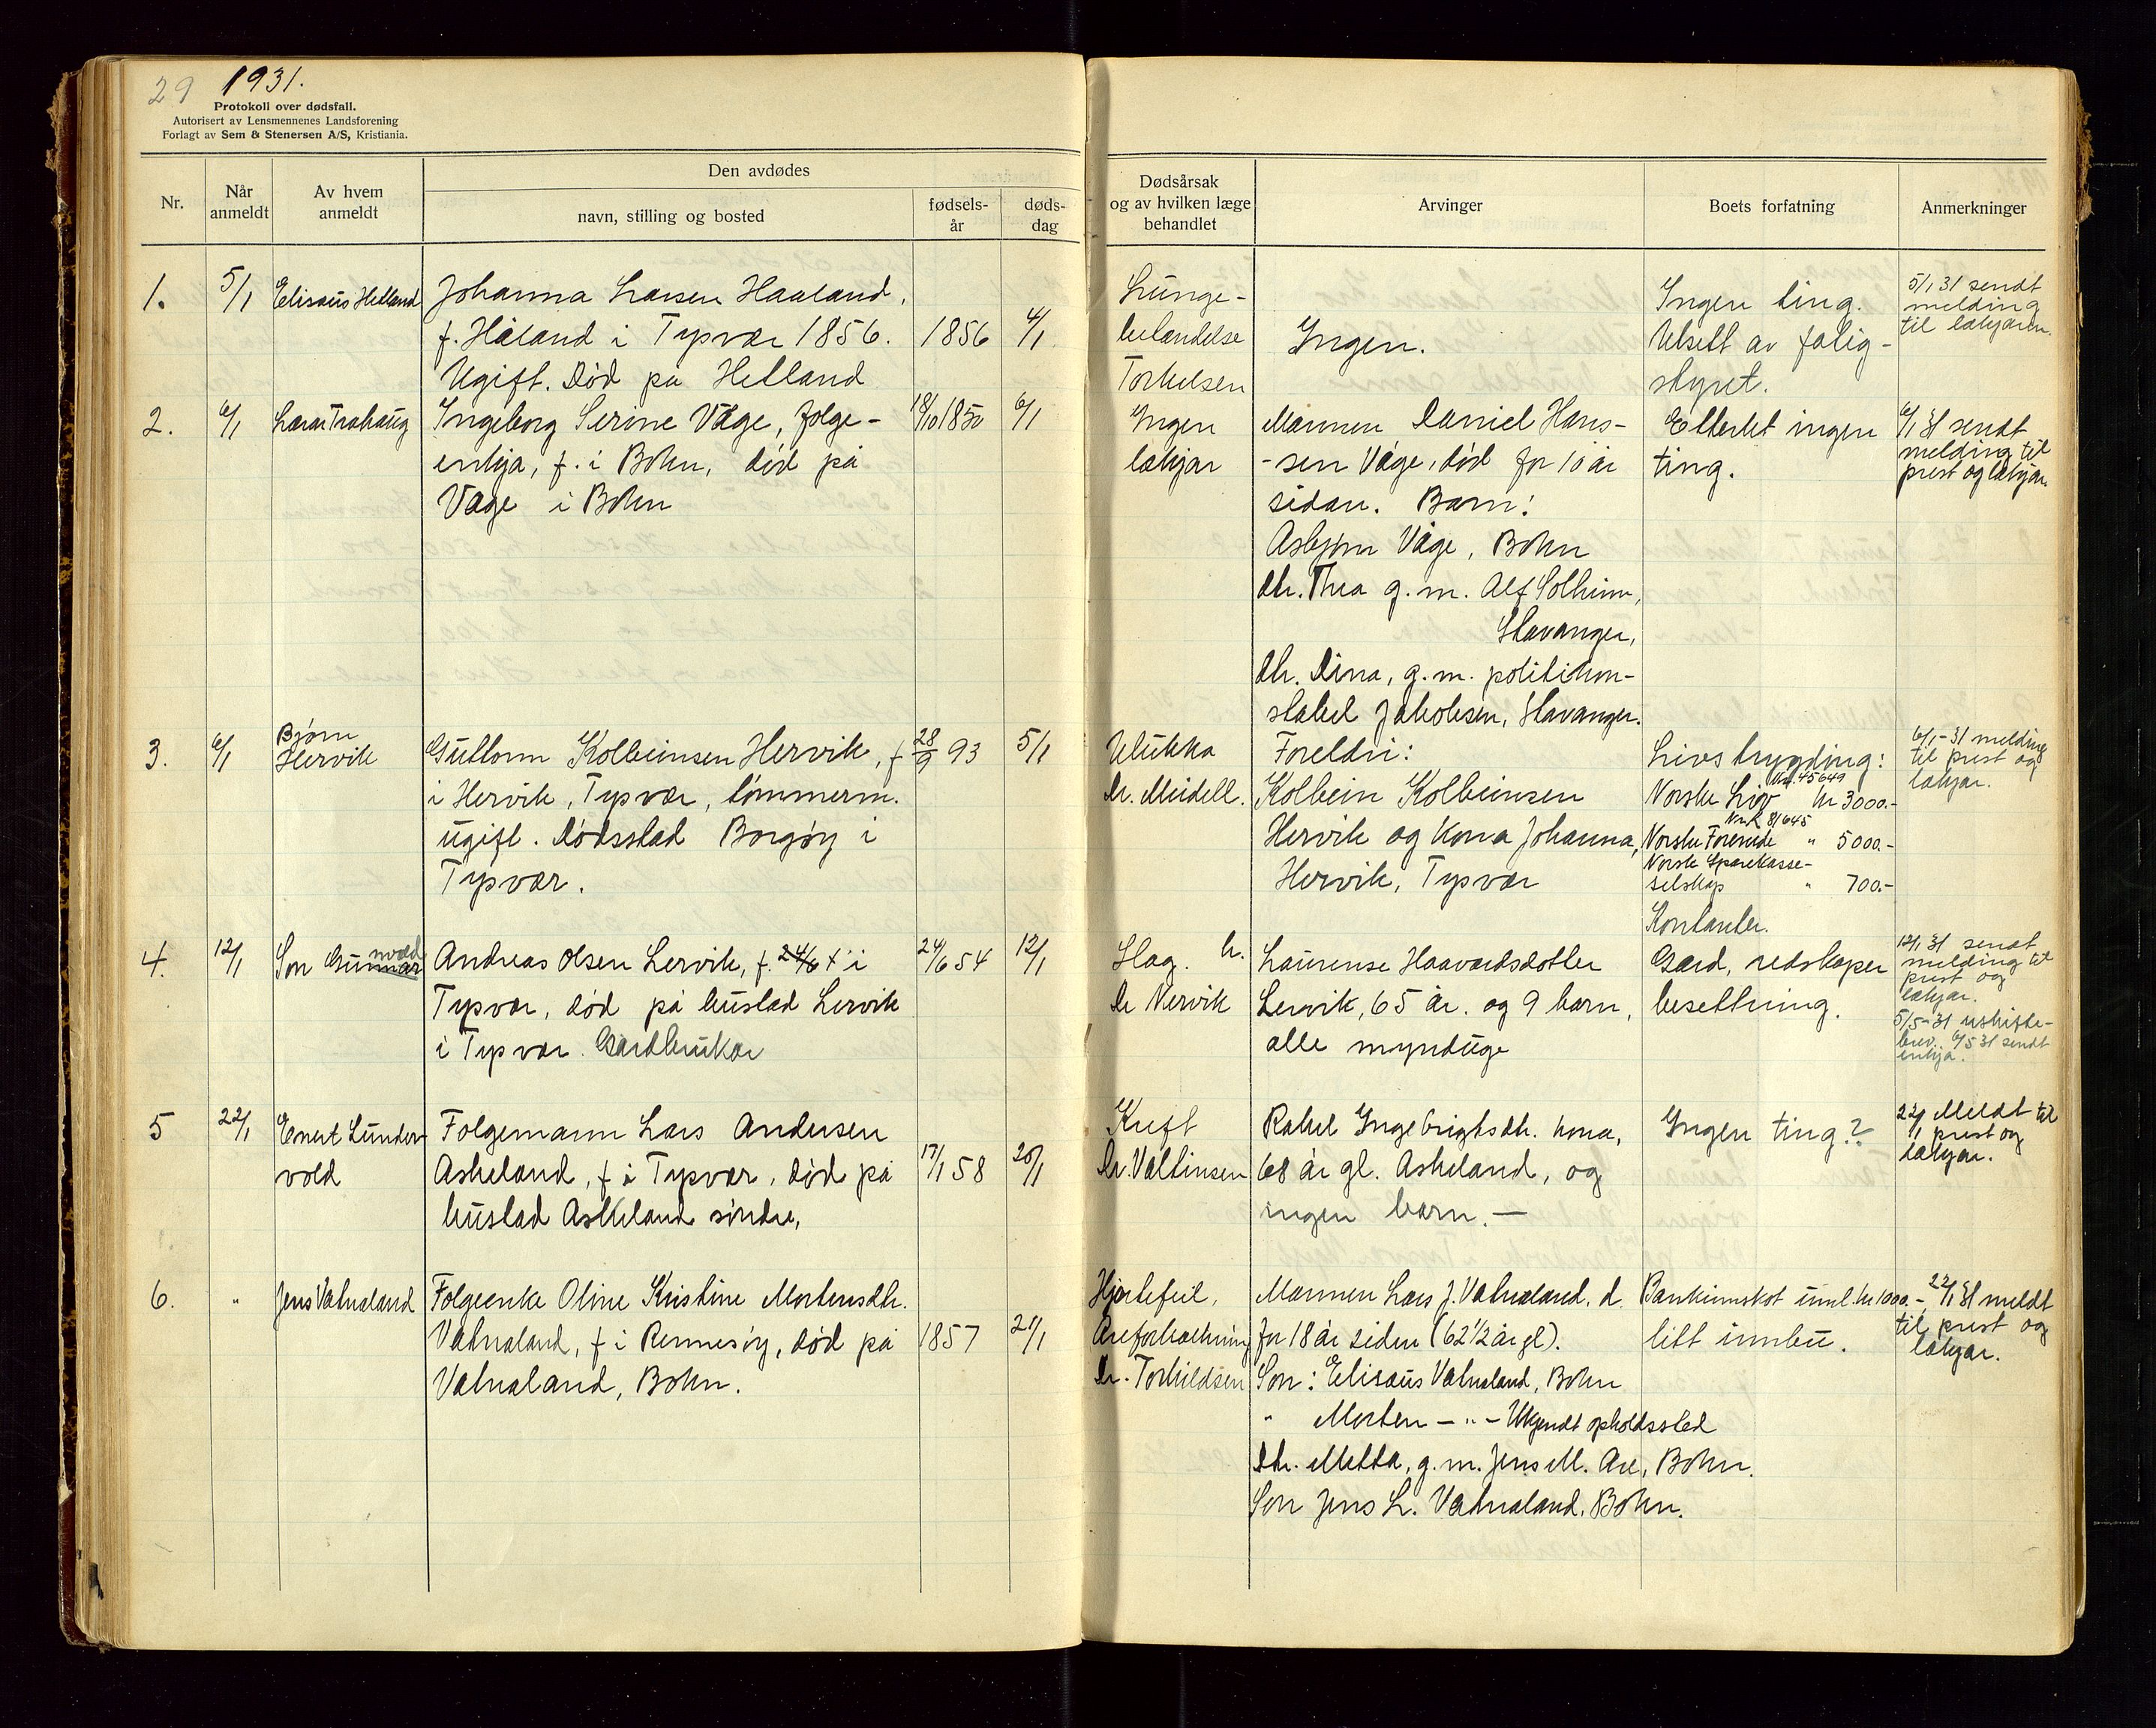 29 1931.
Protokoll over dødsfall.
Autorisert av Lensmennenes Landsforening
Forlagt av Sem & Stenersen A/S, Kristiania.
Nr.
Når anmeldt
Av hvem anmeldt
Den avdødes
navn, stilling og bosted
fødsels-år
døds-dag
Dødsårsak og av hvilken læge behandlet
Arvinger
Boets forfatning
Anmerkninger
1.
5/1
Elisæus Helland
Johanna Larsen Haaland,
f. Håland i Tysvær 1856.
Ugift. Død på Helland
1856
4/1
Lunge-
betendelse
Torkelsen
Ingen.
Ingen ting.
Utsett av fatig-
styret.
5/1 31 sendt
melding
til lækjaren.
2.
6/1
Ingeborg Serine Våge, folge-
enkja, f. i Bokn, død på
Våge i Bokn
18/10 1850
6/1
Ingen
lækjar
Mannen Daniel Hans-
-sen Våge, død for 10 år
sidan. Barn:
Asbjørn Våge, Bokn
dtr. Thea g. m. Alf Solheim,
Stavanger,
dtr. Dina, g. m. politikon-
stabel Jakobsen, Stavanger.
Etterlet ingen
ting.
6/1 31 sendt
melding til
prest og lækjar
3.
6/1
Bjørn
Hervik
Guttorm Kolbeinsen Hervik, f
i Hervik, Tysvær, tømmerm.
ugift. Dødsstad Borgøy i
Tysvær.
28/9 93
5/1
Ulukka
Dr. Meidell.
Foreldri:
Kolbein Kolbeinsen
Hervik og kona Johanna,
Hervik, Tysvær
Livstrygding:
Nr. 45649
Norske Liv kr 3000.-
Nr. R 81645
Norske Forenede " 5000.-
Norsk Sparekasse-
selskap " 700.-
Kontanter.
6/1-31 melding
til prest og
lækjar.
4.
12/1
Son Gunnar
nvald
Andreas Olsen Lervik, f. 24/6 + i
Tysvær, død på bustad Lervik
i Tysvær. Gardbrukar
24/6 54
12/1
Slag.
Dr Nervik
k.
Laurense Haavardsdotter
Lervik, 65 år. og 9 barn,
alle mynduge
Gard, redskaper
besettning.
12/1 31 sendt
melding til
prest og
lækjar.
5/5-31 uskifte-
brev. 6/5 31 sendt
enkja.
5
22/1
Enert Lunder-
vold
Folgemann Lars Andersen
Askeland, f i Tysvær, død på
bustad Askeland søndre,
17/1 58
20/1
Kreft
Dr. Valtinsen
Rakel Ingebrigtsdtr. kona,
68 år gl. Askeland, og
ingen barn. —
Ingen ting?
22/1 Meldt til
prest og
lækjar.
6.
"
Jens Vatnaland
Folgeenke Oline Kristine Mortensdtr.
Vatnaland, f i Rennesøy, død på
Vatnaland, Bokn.
1857
21/1
Hjertefeil,
Areforkalkning
Dr. Torkildsen
Mannen Lars J. Vatnaland, d.
for 18 år siden (62 1/2 år gl).
Son: Elisæus Vatnaland, Bokn
" Morten — " — Ukjendt opholdssted
Dtr. Metta, g. m. Jens M. Are, Bokn.
Son Jens L. Vatnaland, Bokn.
Bankinnskot uml. kr 1000.-
litt innbu.
22/1 31 meldt
til prest og
lækjar.